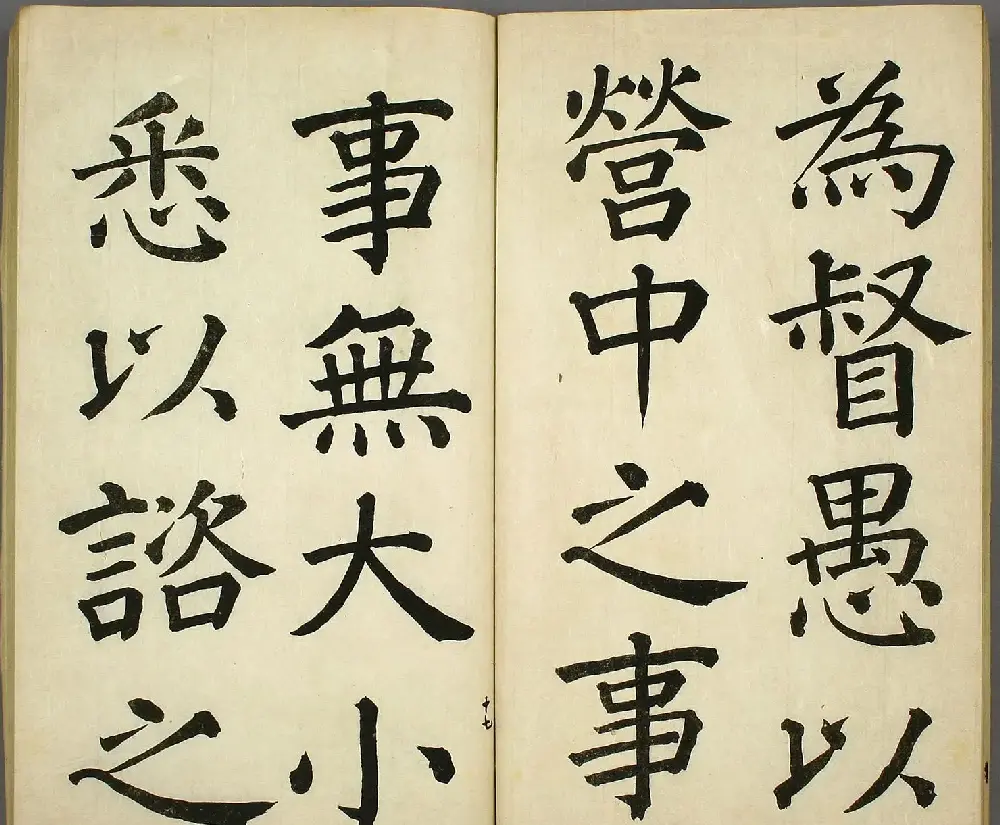 為督愚以
營中之事
事無大小
悉以諮之
十七